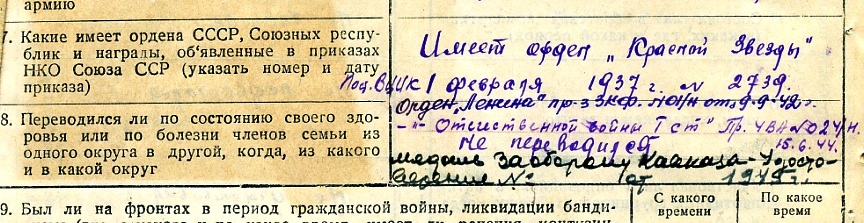 армию
7. Какие имеет ордена СССР, Союзных респу-
блик и награды, об'явленные в приказах
НКО Союза ССР (указать номер и дату
приказа)
Имеет орден „Красной Звезды"
Пост. ВЦИК 1 февраля 1937 г. N 2739.
Орден „Ленина" пр-з Зкф. №01/н от 9-9-42 г.
—"— Отечественной войны I ст" Пр. ЧВА №024/н.
15.6.44.
8. Переводился ли по состоянию своего здо-
ровья или по болезни членов семьи из
одного округа в другой, когда, из какого
и в какой округ
не переводился
медаль За оборону Кавказа - Удосто-
верение № от 1945 г.
9. Был ли на фронтах в период гражданской войны, ликвидации банди-
С какого
времени
По какое
время